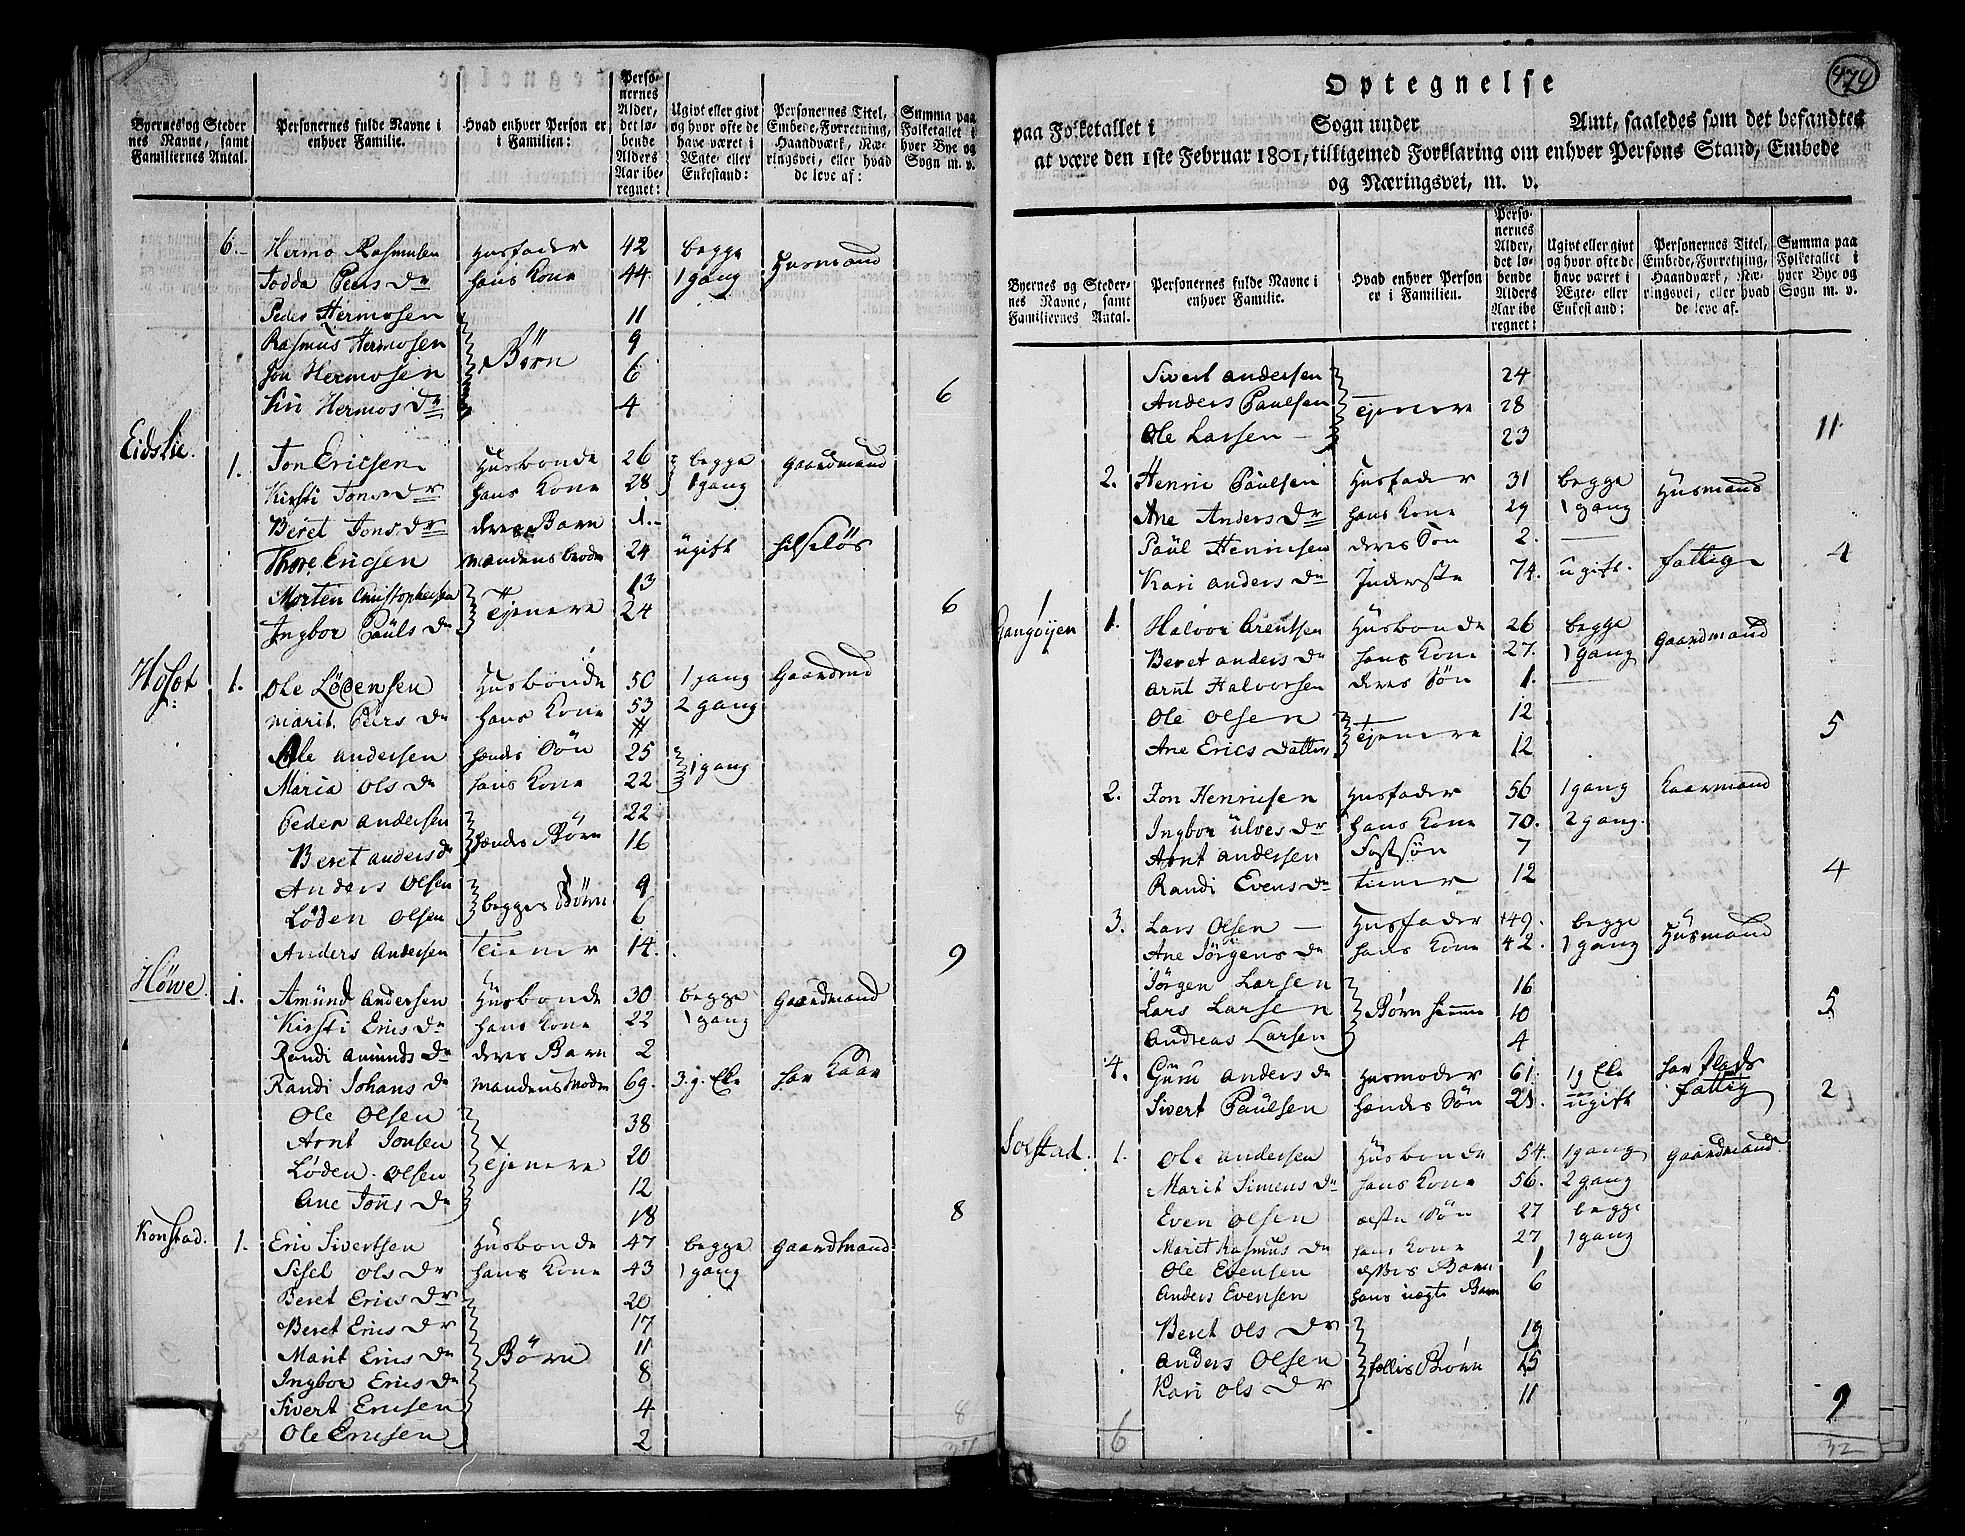 Byernes og Steder
nes Navne, samt
Familiernes Antal.
Personernes fulde Navne i
enhver Familie.
Hvad enhver Person er
i Familien:
Perso-
nernes
Alder,
det lø-
bende
Alders
Aar ibe-
regnet:
Ugivt eller givt
og hvor ofte de
have været i
Ægte- eller
Enkestand:
Personernes Titel,
Embede, Forretning,
Haandværk, Næ-
ringsvei, eller hvad
de leve af:
Summa paa
Folketallet i
hver Bye og
Sogn m. v.
6. Hermo Rasmusen Husfader 42 begge Husmand
Todda Peers Dr hans Kone 44. 1 gang
Peder Hermosen 11
Rasmus Hermosen 9
Jon Hermosen Børn 6
Kri Hermos Dr 4 6
Eidslie. 1. Jon Ericsen Husbonde 26 begge gaardmand
Kirsti Jons Dr hans Kone 28 1 gang
Beret Jons Dr deres Barn 1.
Thore Ericsen mandens broder 24 ugift
Morten Christophersen 13
Ingbor Pauls Dr Tjenere 24 6
Holot 1. Ole Lødensen Husbonde 50 1 gang Gaardmd
Marit Peers Dr hans Kone 53 2 gang
Ole Andersen hendes Søn 25
Maria Ols Dr hans Kone 22 1 gang
Peder Andersen 22
Beret Anders Dr hendes Børn 16
Anders Olsen 9
Løden Olsen begges Børn 6
Anders Andersen Tiener 14. 9
Höwe 1. Amund Andersen Husbonde 30 begge gaardmand
Kirsti Erics Dr hans Kone 22 1 gang
Randi Amunds Dr deres Barn 2
Randi Johans Dr mandens Moder 69. 3. g. Eke har Kaar
Ole Olsen 38
Arnt Jonsen 20
Løden Olsen Tjenere 12
Ane Jons Dr 18 8
Konstad. 1. Eric Sivertsen Husbonde 47 begge gaardmand
Sisel Ols Dr hans Kone 43 1 gang
Beret Erics Dr 20
Beret Erics Dr 17
Marit Erics Dr Børn 11
Ingbor Erics Dr 8
Sivert Ericsen 4
Ole Ericsen 2
8
37
474
Optegnelse
paa Folketallet i Sogn under Amt, saaledes som det befandtes
at være den 1ste Februar 1801, tilligemed Forklaring om enhver Persons Stand, Embede
og Næringsvei, m. v.
Byernes og Steder-
nes Navne, samt
Familiernes Antal.
Personernes fulde Navne i
enhver Familie.
Hvad enhver Person
er i Familien.
Perso-
nernes
Alder,
det lø-
bende
Alders
Aar ibe
regnet:
Ugivt eller givt
og hvor ofte de
have været i
Ægte- eller
Enkestand:
Personernes Titel,
Embede, Forretning,
Haandværk, Næ-
ringsvei, eller hvad
de leve af.
Summa paa
Folketallet i
hver Bye og
Sogn m. v.
Sivert Andersen 24
Anders Paulsen Tjenere 28
Ole Larsen 23 11
2. Henric Paulsen Husfader 31 begge Husmand
Ane Anders Dr hans Kone 29 1 gang
Paul Henricsen deres Søn 2.
Kari Anders Dr Inderste 74. ugift. fattig 4
Gangøijen 1. Halvor Arentsen Husbonde 26 begge gaardmand
Beret Anders Dr hans Kone 27. 1 gang
Arnt Halvorsen deres Søn 1.
Ole Olsen 12
Ane Erics Datter Tjenere 12 5
2. Jon Henricsen Husfader 56 1 gang Kaarmand
Ingbor Ulves Dr hans Kone 70. 2 gang.
Arnt Andersen Fostsøn 7
Randi Evens Dr tiener 12 4
3. Lars Olsen Husfader 49. begge Husmand
Ane Jörgens Dr hans Kone 42. 1 gang
Jörgen Larsen 16
Lars Larsen Børn 10
Andreas Larsen 4 5
4. Guru Anders Dr Husmoder 61. 1 g Eke har Plads
Sivert Paulsen hendes Søn 21. ugift fattig 2
Solstad. 1. Ole Andersen Husbonde 54. 1 gang gaardmand
Marit Simens Dr hans Kone 56. 2 gang
Even Olsen ælste Søn 27 begge
Marit Rasmus Dr hans Kone 27 1 gang
Ole Evensen disses Barn 1
Anders Evensen hans uægte Barn 6
Beret Ols Dr 19
Anders Olsen fællis Børn 15
Kari Ols Dr 11 9
6
32